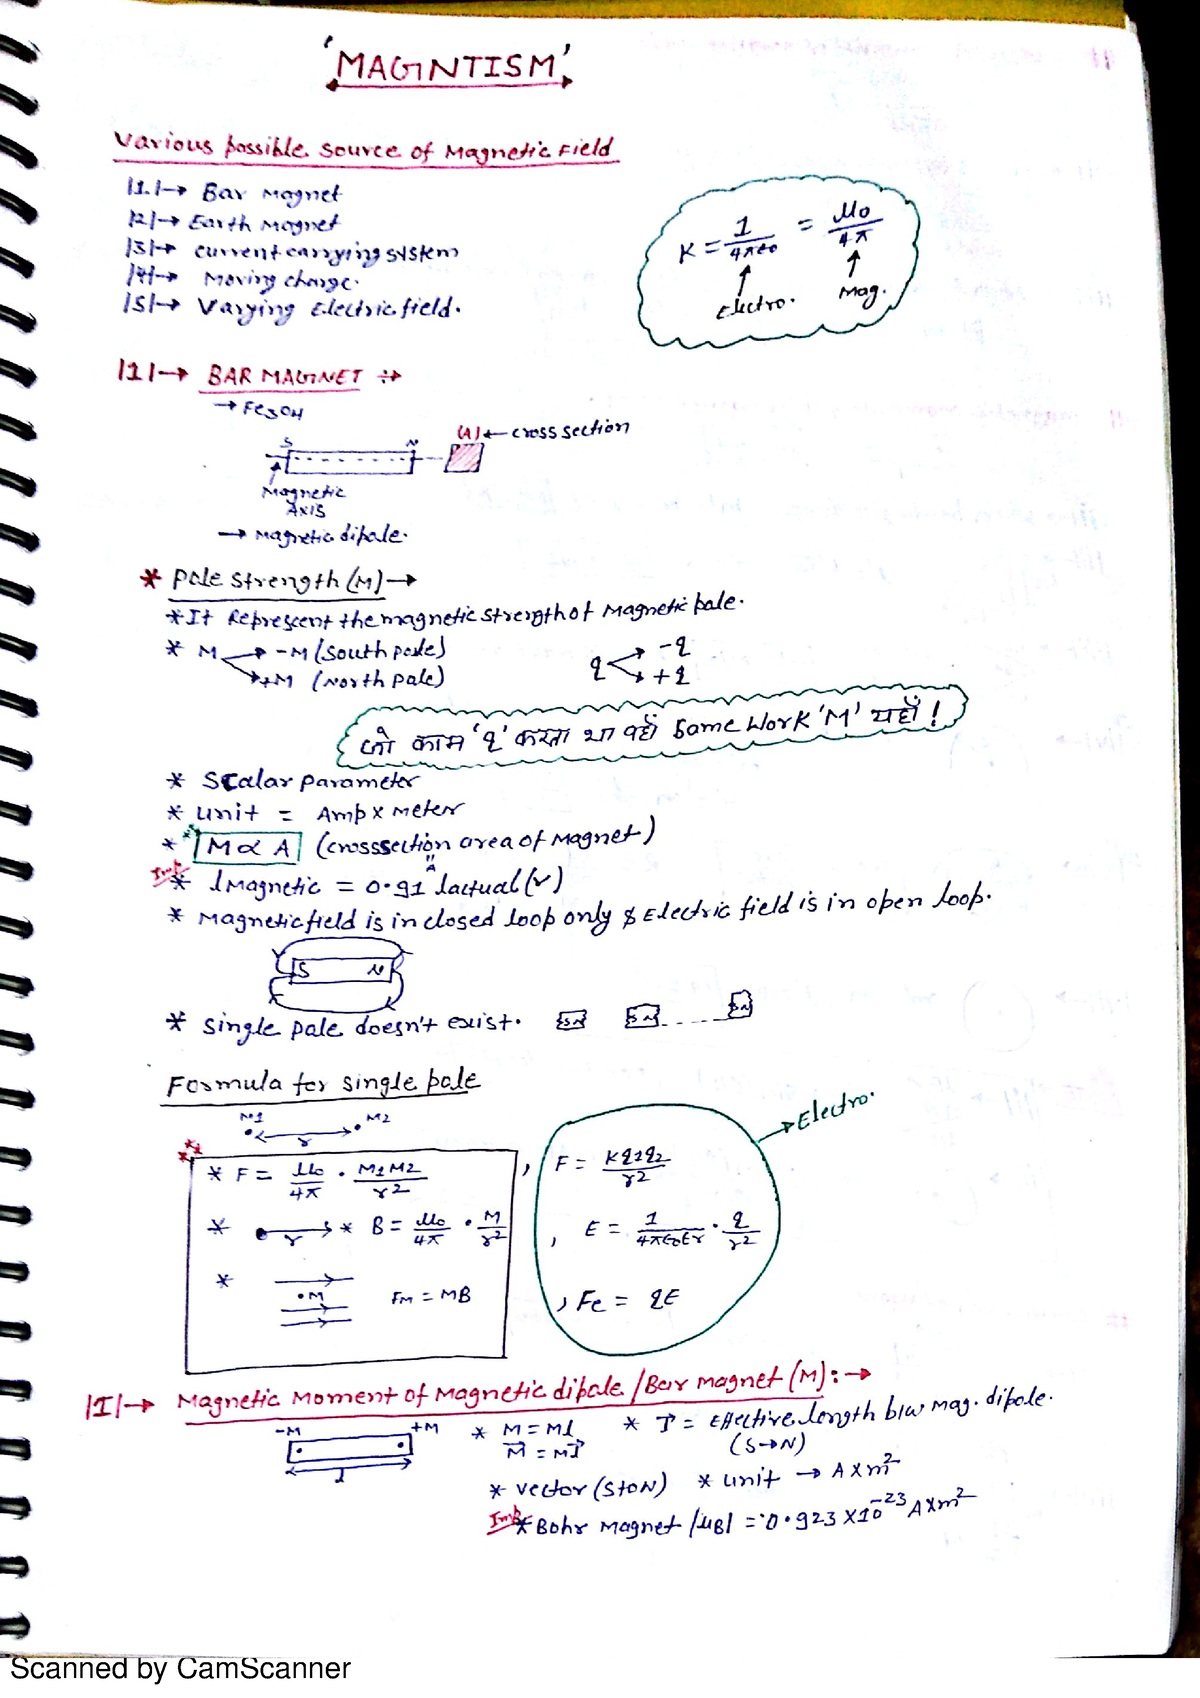 'MAGNTISM'
Various possible source of Magnetic Field
|1.|→ Bar Magnet
|2|→ Earth Magnet
|3|→ current carrying system
|4|→ Moving charge.
|5|→ Varying Electric field.
K = 1/4πε0 = μ0/4π
Electro. Mag.
|1|→ BAR MAGNET :→
→ Fe3O4
S N (A) ← cross section
Magnetic
Axis
→ Magnetic dipole.
* Pole Strength (M) →
* It Represent the magnetic strength of Magnetic pole.
* M → -M (South pole) q → -q
→ +M (North pole) → +q
जो काम 'q' करता था वहाँ Same Work 'M' यहाँ !
* Scalar parameter
* unit = Amp x meter
* M ∝ A (crosssection area of Magnet)
"A"
Imp * lMagnetic = 0.91 lactual (✓)
* Magnetic field is in closed loop only & Electric field is in open loop.
S N
* single pole doesn't exist. S N S N S N
Formula for single pole
M1 M2
r
→ Electro.
* F = μ0/4π . M1M2/r2 , F = Kq1q2/r2
* r * B = μ0/4π . M/r2 , E = 1/4πε0εr . q/r2
* .M FM = MB , Fe = qE
|I|→ Magnetic Moment of Magnetic dipole / Bar Magnet (M) :→
-M +M * M = Ml * l⃗ = Effective length b/w mag. dipole.
l M⃗ = Ml⃗ (S→N)
* vector (S to N) * unit → A x m2
Imp * Bohr Magnet |μB| = 0.923 x 10-23 A x m2
Scanned by CamScanner